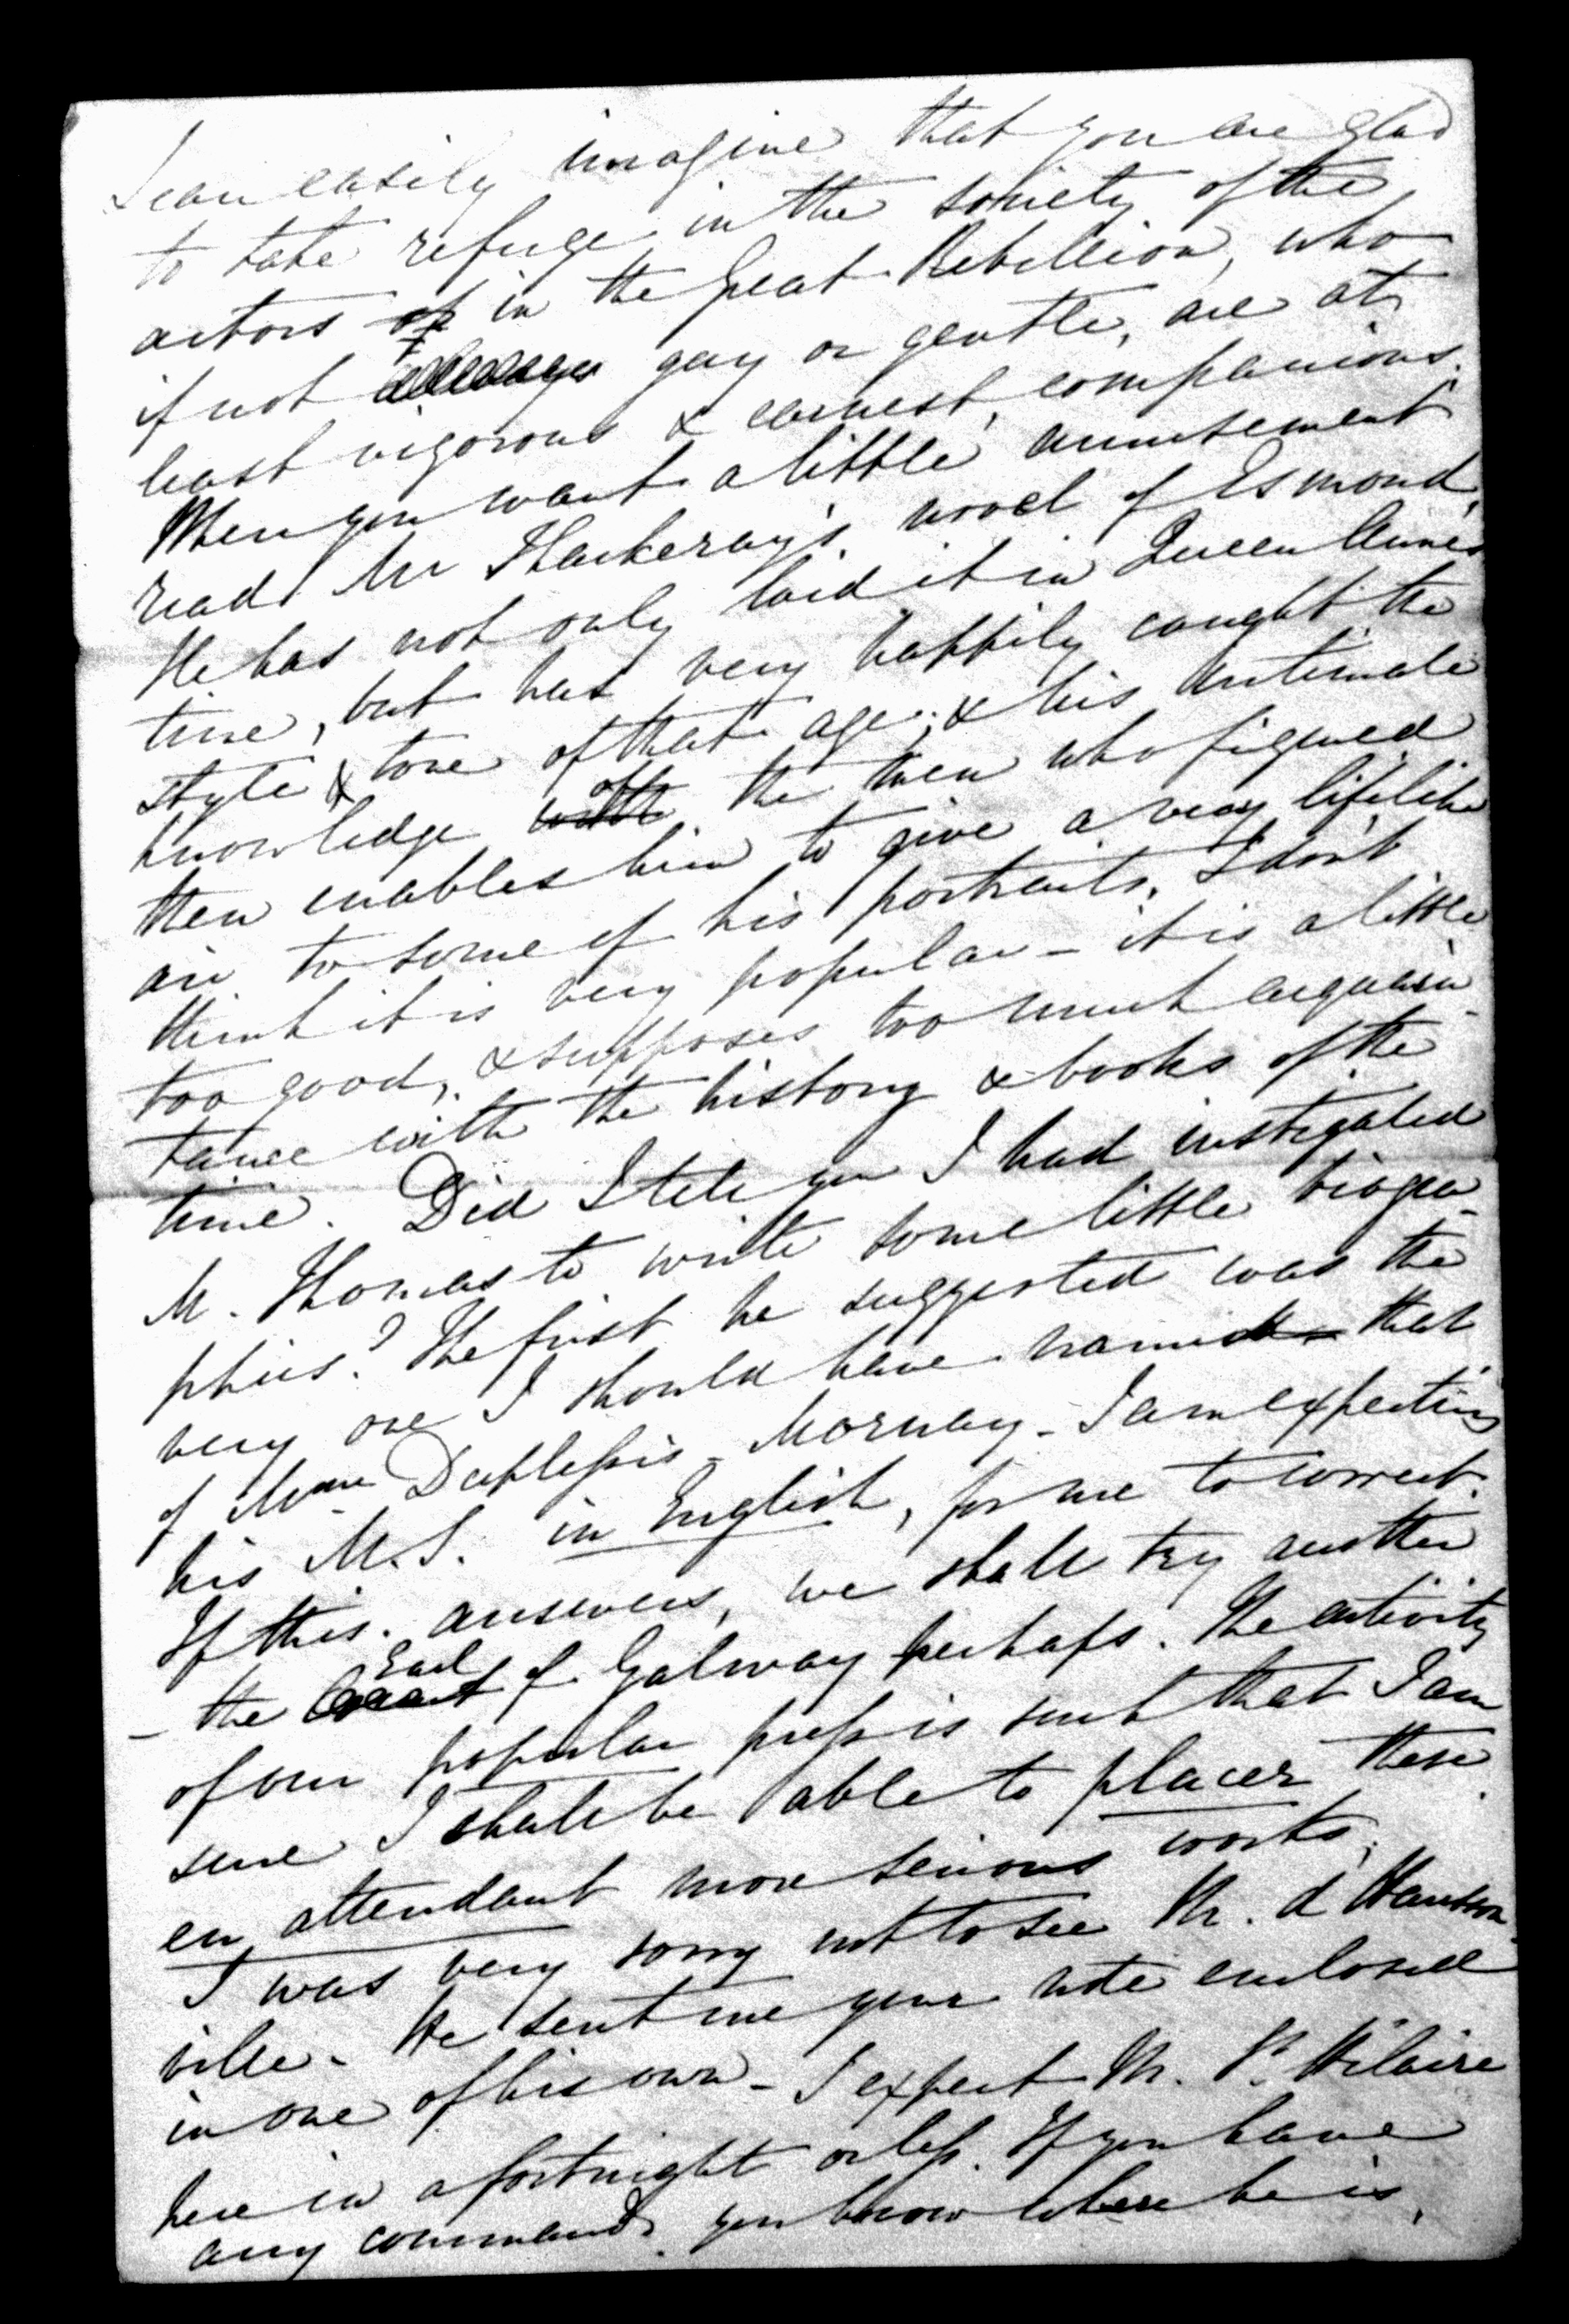 I can easily imagine that you are glad
to take refuge in the society of the
actors of in the Great Rebellion, who
if not gay or gentle, are at
least vigorous & earnest companions.
When you want a little amusement
read Mr Thackeray's novel of Esmond.
He has not only laid it in Queen Anne's
time, but has very happily caught the
style & tone of that age; & his intimate
knowledge with of the men who figured
then enables him to give a very lifelike
air to some of his portraits. I don't
think it is very popular – it is a little
too good, & supposes too much acquain-
tance with the history & books of the
time. Did I tell you I had instigated
M. Thomas to write some little biogra-
phies? The first he suggested was the
very one I should have named – that
of Mme Duplessis-Mornay – I am expecting
his M.S. in English, for me to correct.
If this answers, we shall try another
– the Earl of Galway perhaps. The activity
of our popular press is such that I am
sure I shall be able to placer these
en attendant more serious works.
I was very sorry not to see M. d'Hausson-
ville – He sent me your note enclosed
in one of his own – I expect M. St Hilaire
here in a fortnight or less. If you have
any commands you know where he is.